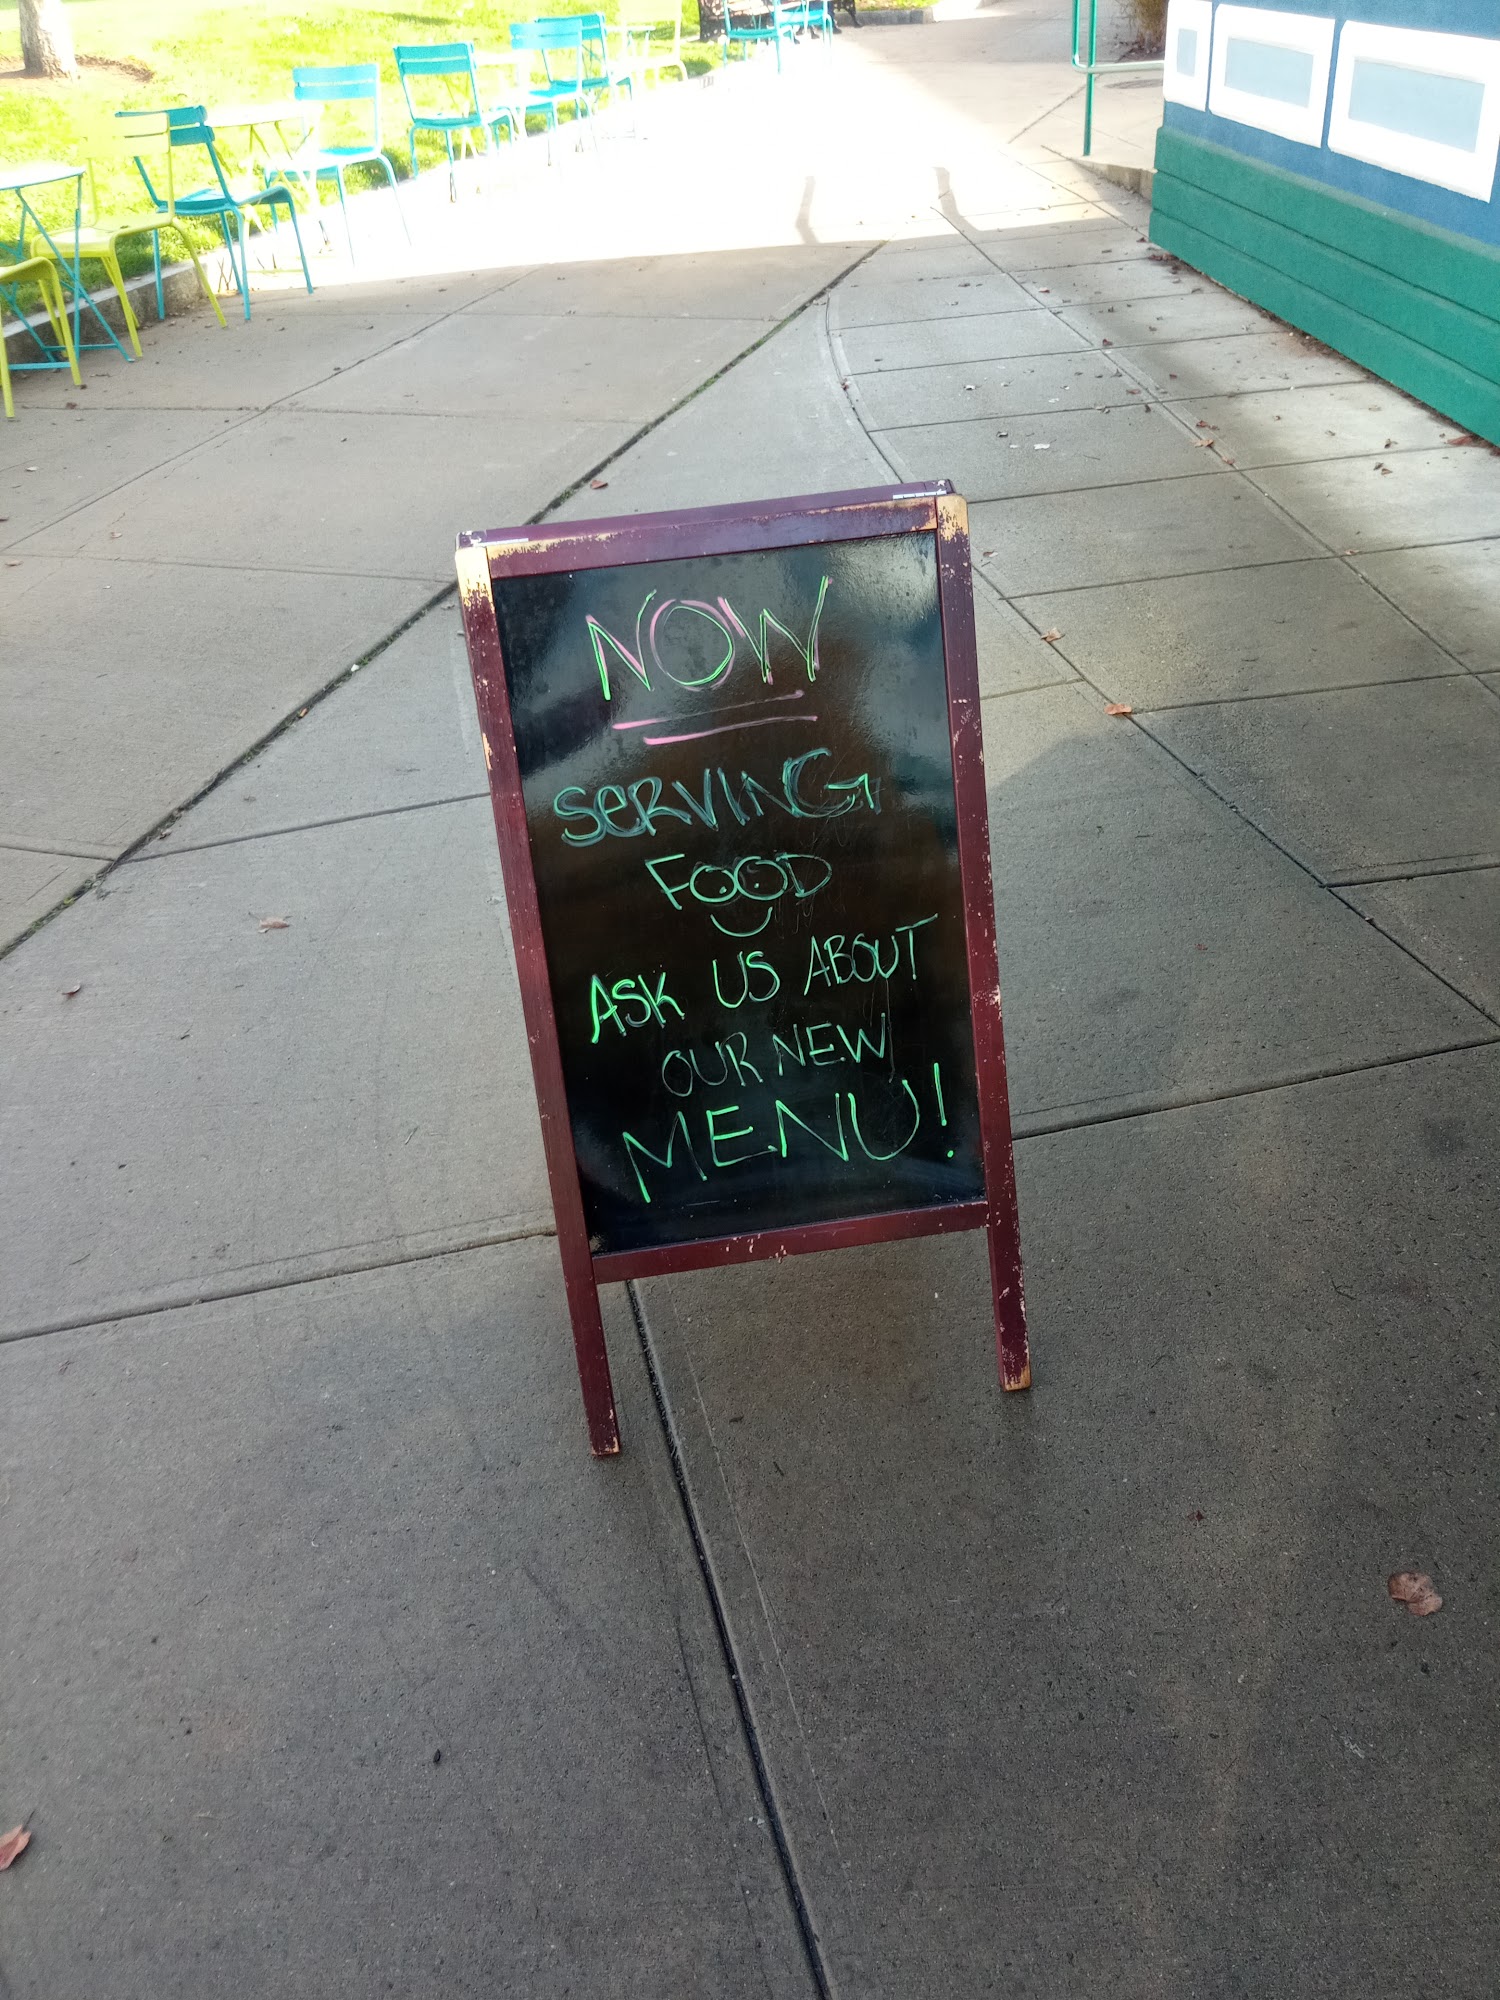 NOW
SERVING
FOOD
ASK US ABOUT
OUR NEW
MENU!